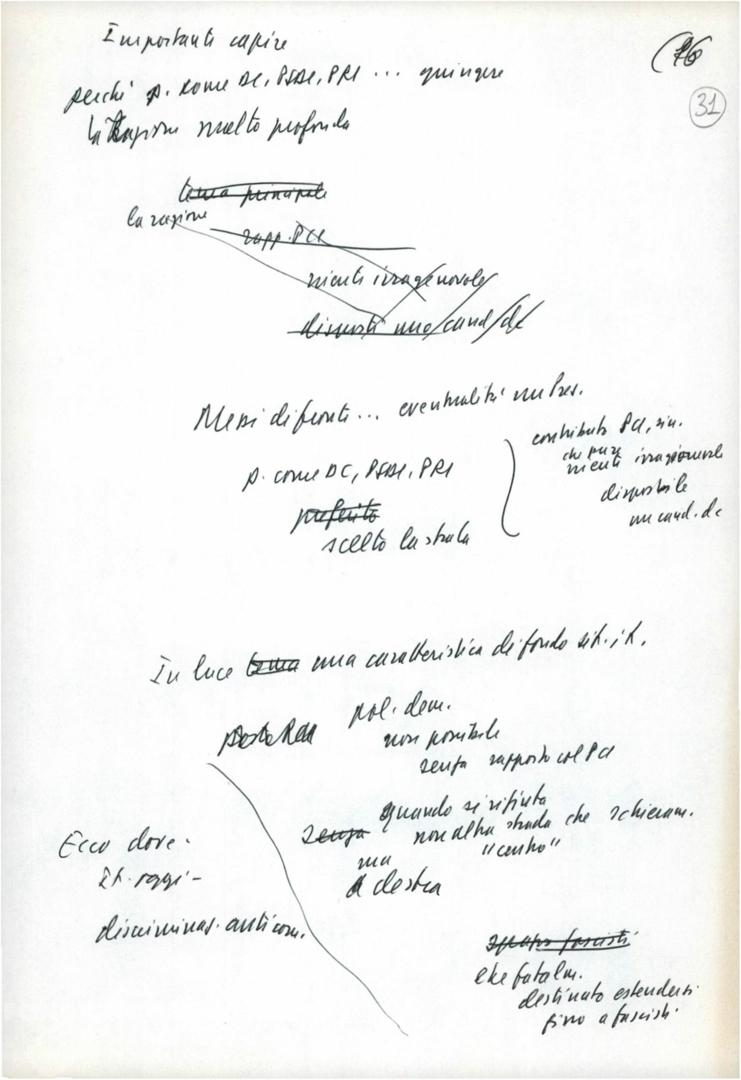 Importante capire
(16
31
perché p. come DC, PSDI, PRI ... giungere
la ragione molto profonda
tema principale
la ragione
rapp. PCI
niente irragionevole
disposti una cand/dc
Messi di fronte... eventualità un Pres.
contributo PCI, sin.
che pure
niente irragionevole
disponibile
un cand. dc
p. come DC, PSDI, PRI
preferito
scelto la strada
In luce tema una caratteristica di fondo sit. it.
pol. dem.
non possibile
senza rapporto col PCI
quando si rifiuta
senza non altra strada che schieram.
ma "centro"
a destra
Ecco dove.
It. oggi -
discriminaz. anticom.
spazio fascisti
che fatalm.
destinato estendersi
fino a fascisti.